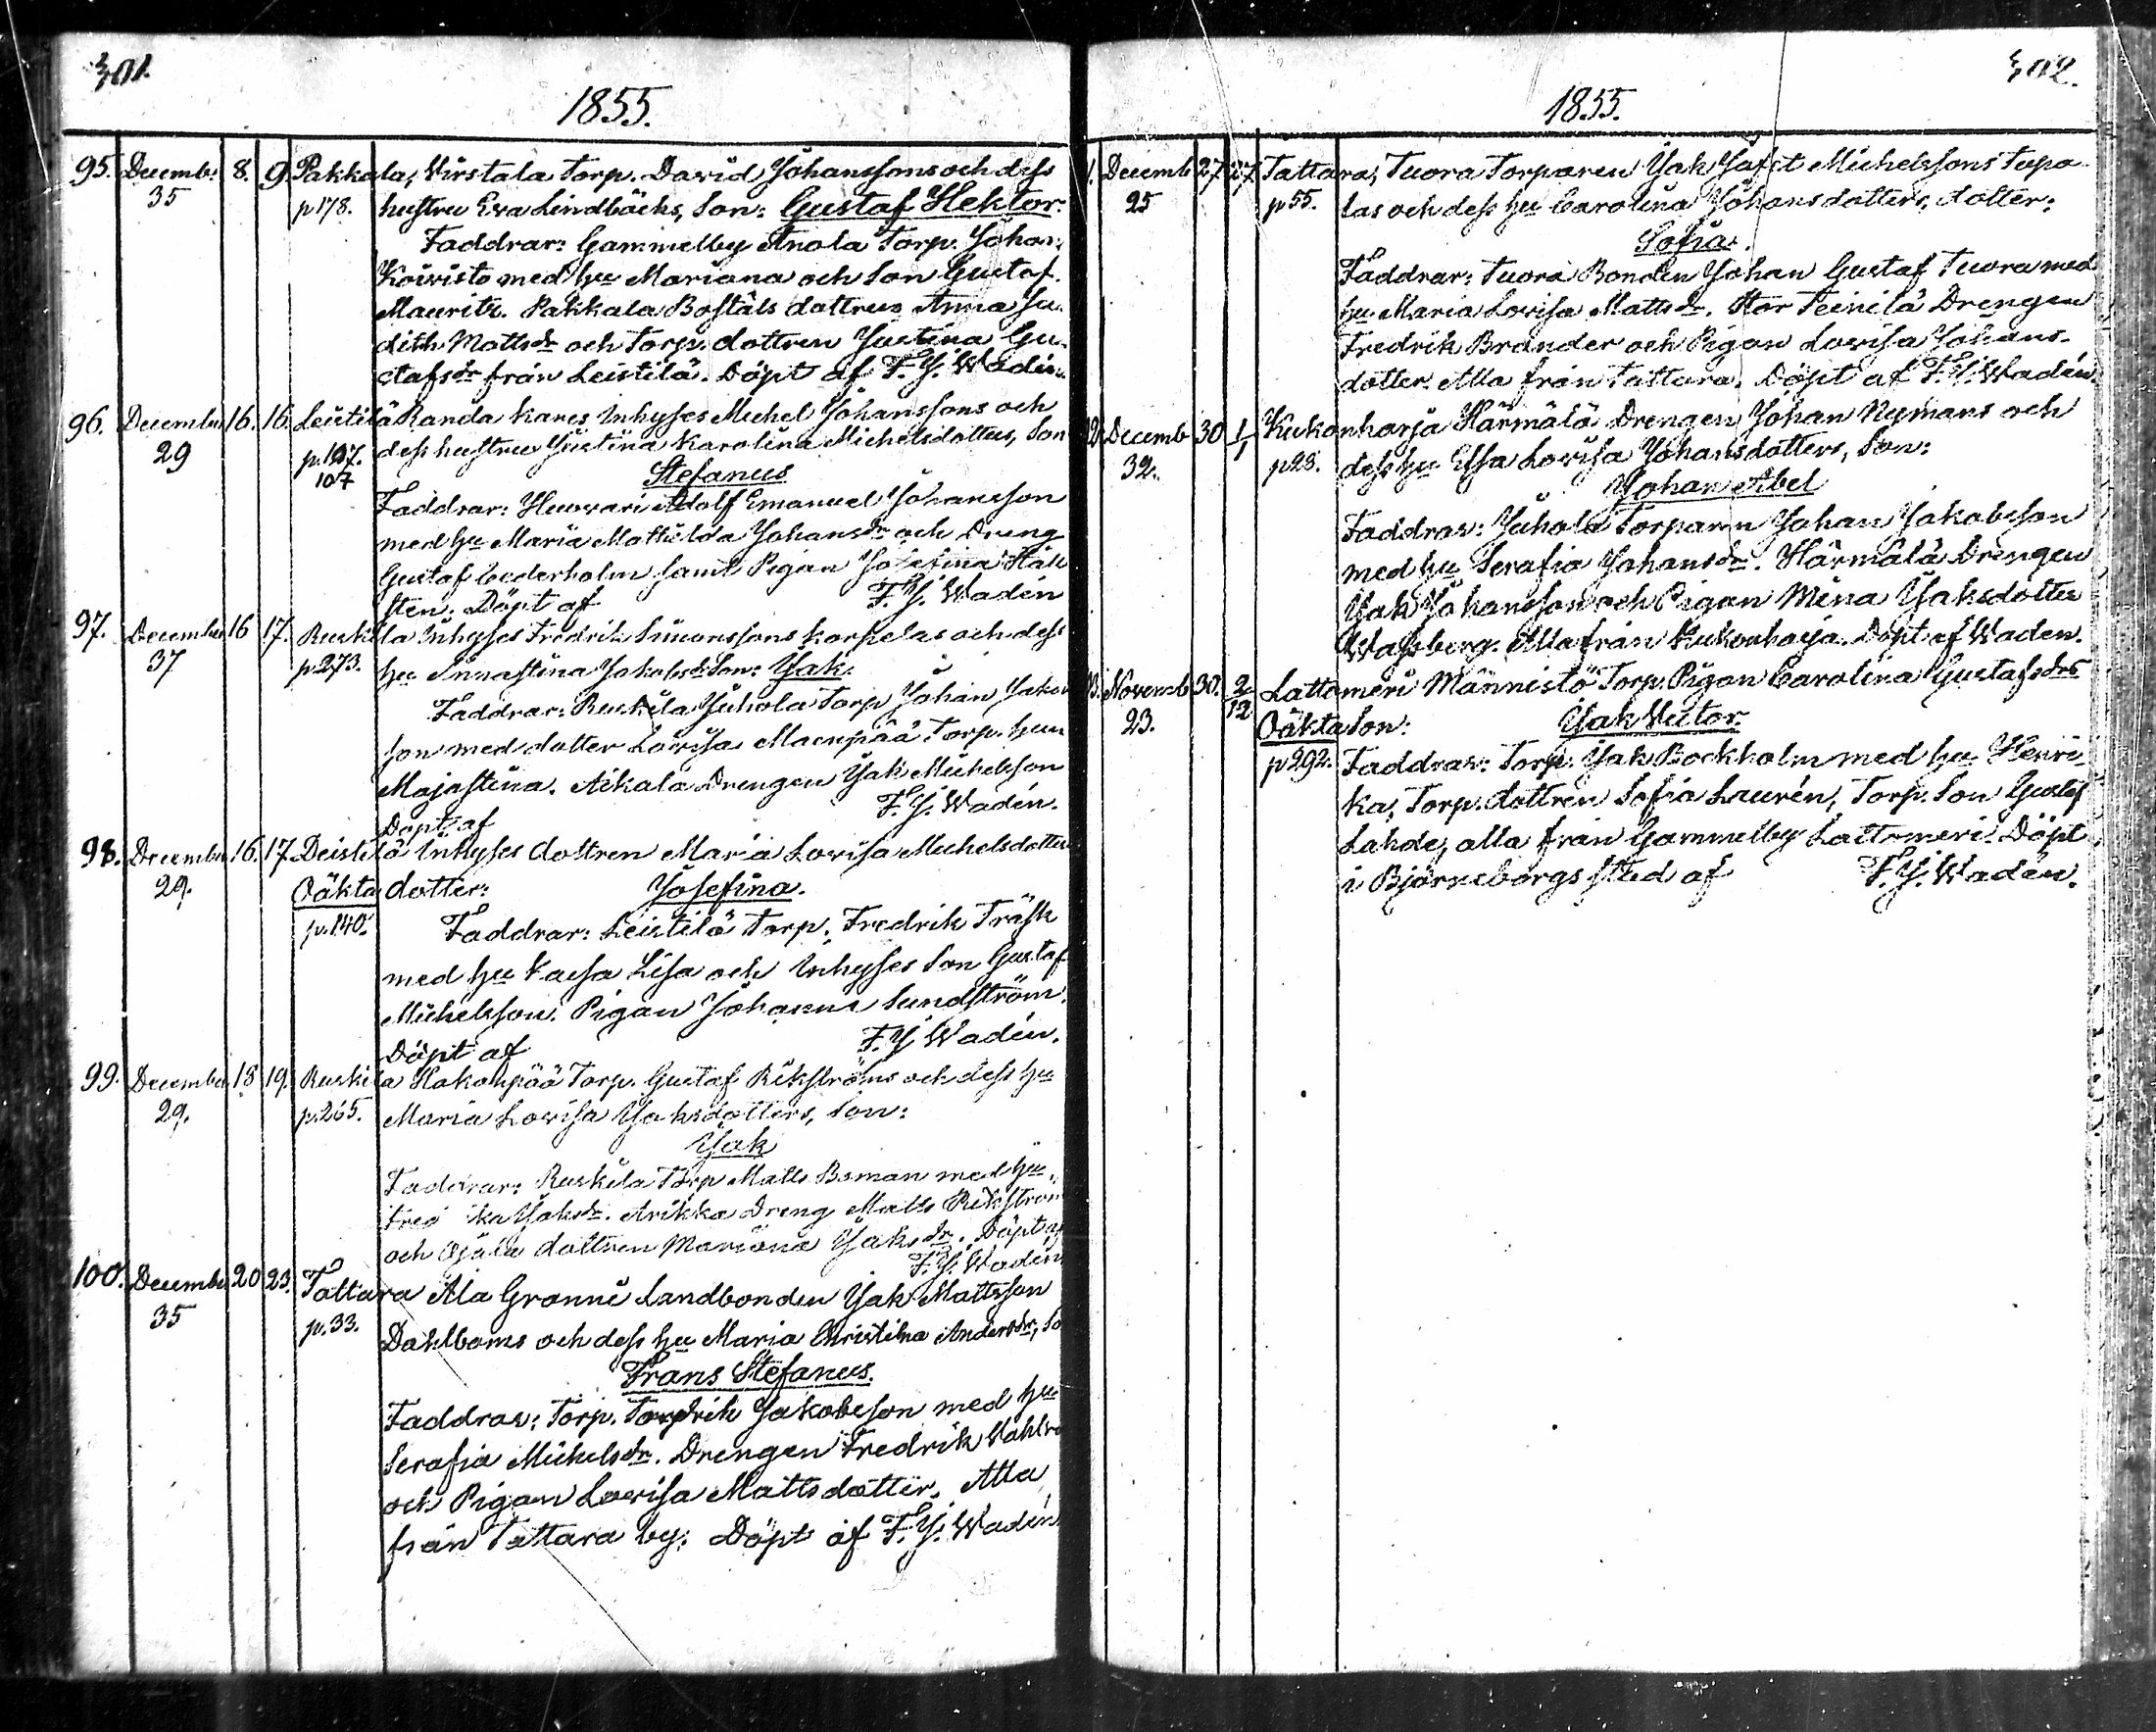 301.
1855.
95. Decemb: 8. 9. Pakkala, Virstala Torp. David Johanssons och dess
35 p 178. hustru Eva Lindbäcks, Son: Gustaf Hektor.
Faddrar: Gammelby Anola Torp. Johan
Koivisto med hu Mariana och Son Gustaf
Maurits. Pakkala Boställs dottren Anna Ju-
dith Mattsdr och Torp. dottren Justina Gu-
stafsdr från Leistilä. Döpt af F. J. Wadén.
96. December 16. 16. Leistilä Randa karcs Inhyses Michel Johanssons och
29 p. 107. dess hustru Justina Karolina Michelsdotters, Son
107 Stefanus
Faddrar: Huovari Adolf Emanuel Johansson
med hu Maria Mathilda Johansdr och Dreng
Gustaf Cederholm samt Pigan Josefina Häll
sten. Döpt af F. J. Wadén
97. December 16 17. Ruskila Inhyses Fredrik Simonssons Korpelas och dess
37 p. 273. hu Annastina Jakobsdr Son: Jak.
Faddrar: Ruskila Juhola Torp Johan Jakob
son med dotter Lovisa. Maenpää Torp. hun
Majastina. Aikala Drengen Jak Michelsson
Döpt af F. J. Wadén.
98. December 16. 17 Leistilä Inhyses dottren Maria Lovisa Michelsdotter
29. Oäkta dotter: Josefina.
p. 140. Faddrar: Leistilä Torp. Fredrik Träsk
med hu Kaisa Lisa och Inhyses Son Gustaf
Michelsson. Pigan Johanna Sundström.
Döpt af F. J. Wadén.
99. December 18 19. Ruskila Hakonpää Torp. Gustaf Rikströms och dess hu
29. p. 265. Maria Lovisa Jaksdotters, Son:
Jak
Faddrar: Ruskila Torp Matts Boman med hu
Fred ika Jaksdr. Arikka Dreng Matts Rikström
och Ojala dottren Mariana Jaksdr. Döpt af
F. J. Wadén
100. December 20 23. Tattara Ala Granni Landbonden Jak Mattsson
35 p. 33. Dahlboms och dess hu Maria Christina Andersdr, So
Frans Stefanus.
Faddrar: Torp. Fredrik Jakobsson med hu
Serafia Michelsdr. Drengen Fredrik Wahlro
och Pigan Lovisa Mattsdotter. Alla
från Tattara by. Döpt af F. J. Wadén
302.
1855.
1. Decemb 27 27 Tattara, Tuora Torparen Jak Jafet Michelssons Tupa-
25 p 55. las och dess hu Carolina Johansdotters, dotter:
Sofia.
Faddrar: Tuora Bonden Johan Gustaf Tuora med
hu Maria Lovisa Mattsdr. Stor Teinilä Drengen
Fredrik Brander och Pigan Lovisa Johans-
dotter. Alla från Tattara. Döpt af F. J. Wadén.
2. Decemb 30 1/1 Kukonharja Härmälä Drengen Johan Nymans och
32. p 28. dess hu Effa Lovisa Johansdotters, Son:
Johan Abel
Faddrar: Juhola Torparn Johan Jakobsson
med hu Serafia Johansdr. Härmälä Drengen
Jak Johansson och Pigan Mina Jaksdotter
Wassberg. Alla från Kukonharja. Döpt af Waden.
3. Novemb 30. 2/12 Lattomeri Männistö Torp. Pigan Carolina Gustafsdrs
23. Oäkta Son: Jak Victor.
p 292. Faddrar: Torp. Jak Bockholm med hu Henri-
ka, Torp. dottren Sofia Laurén, Torp. Son Gustaf
Lahde, alla från Gammelby Lattomeri. Döpt
i Björneborgs stad af F. J. Wadén.